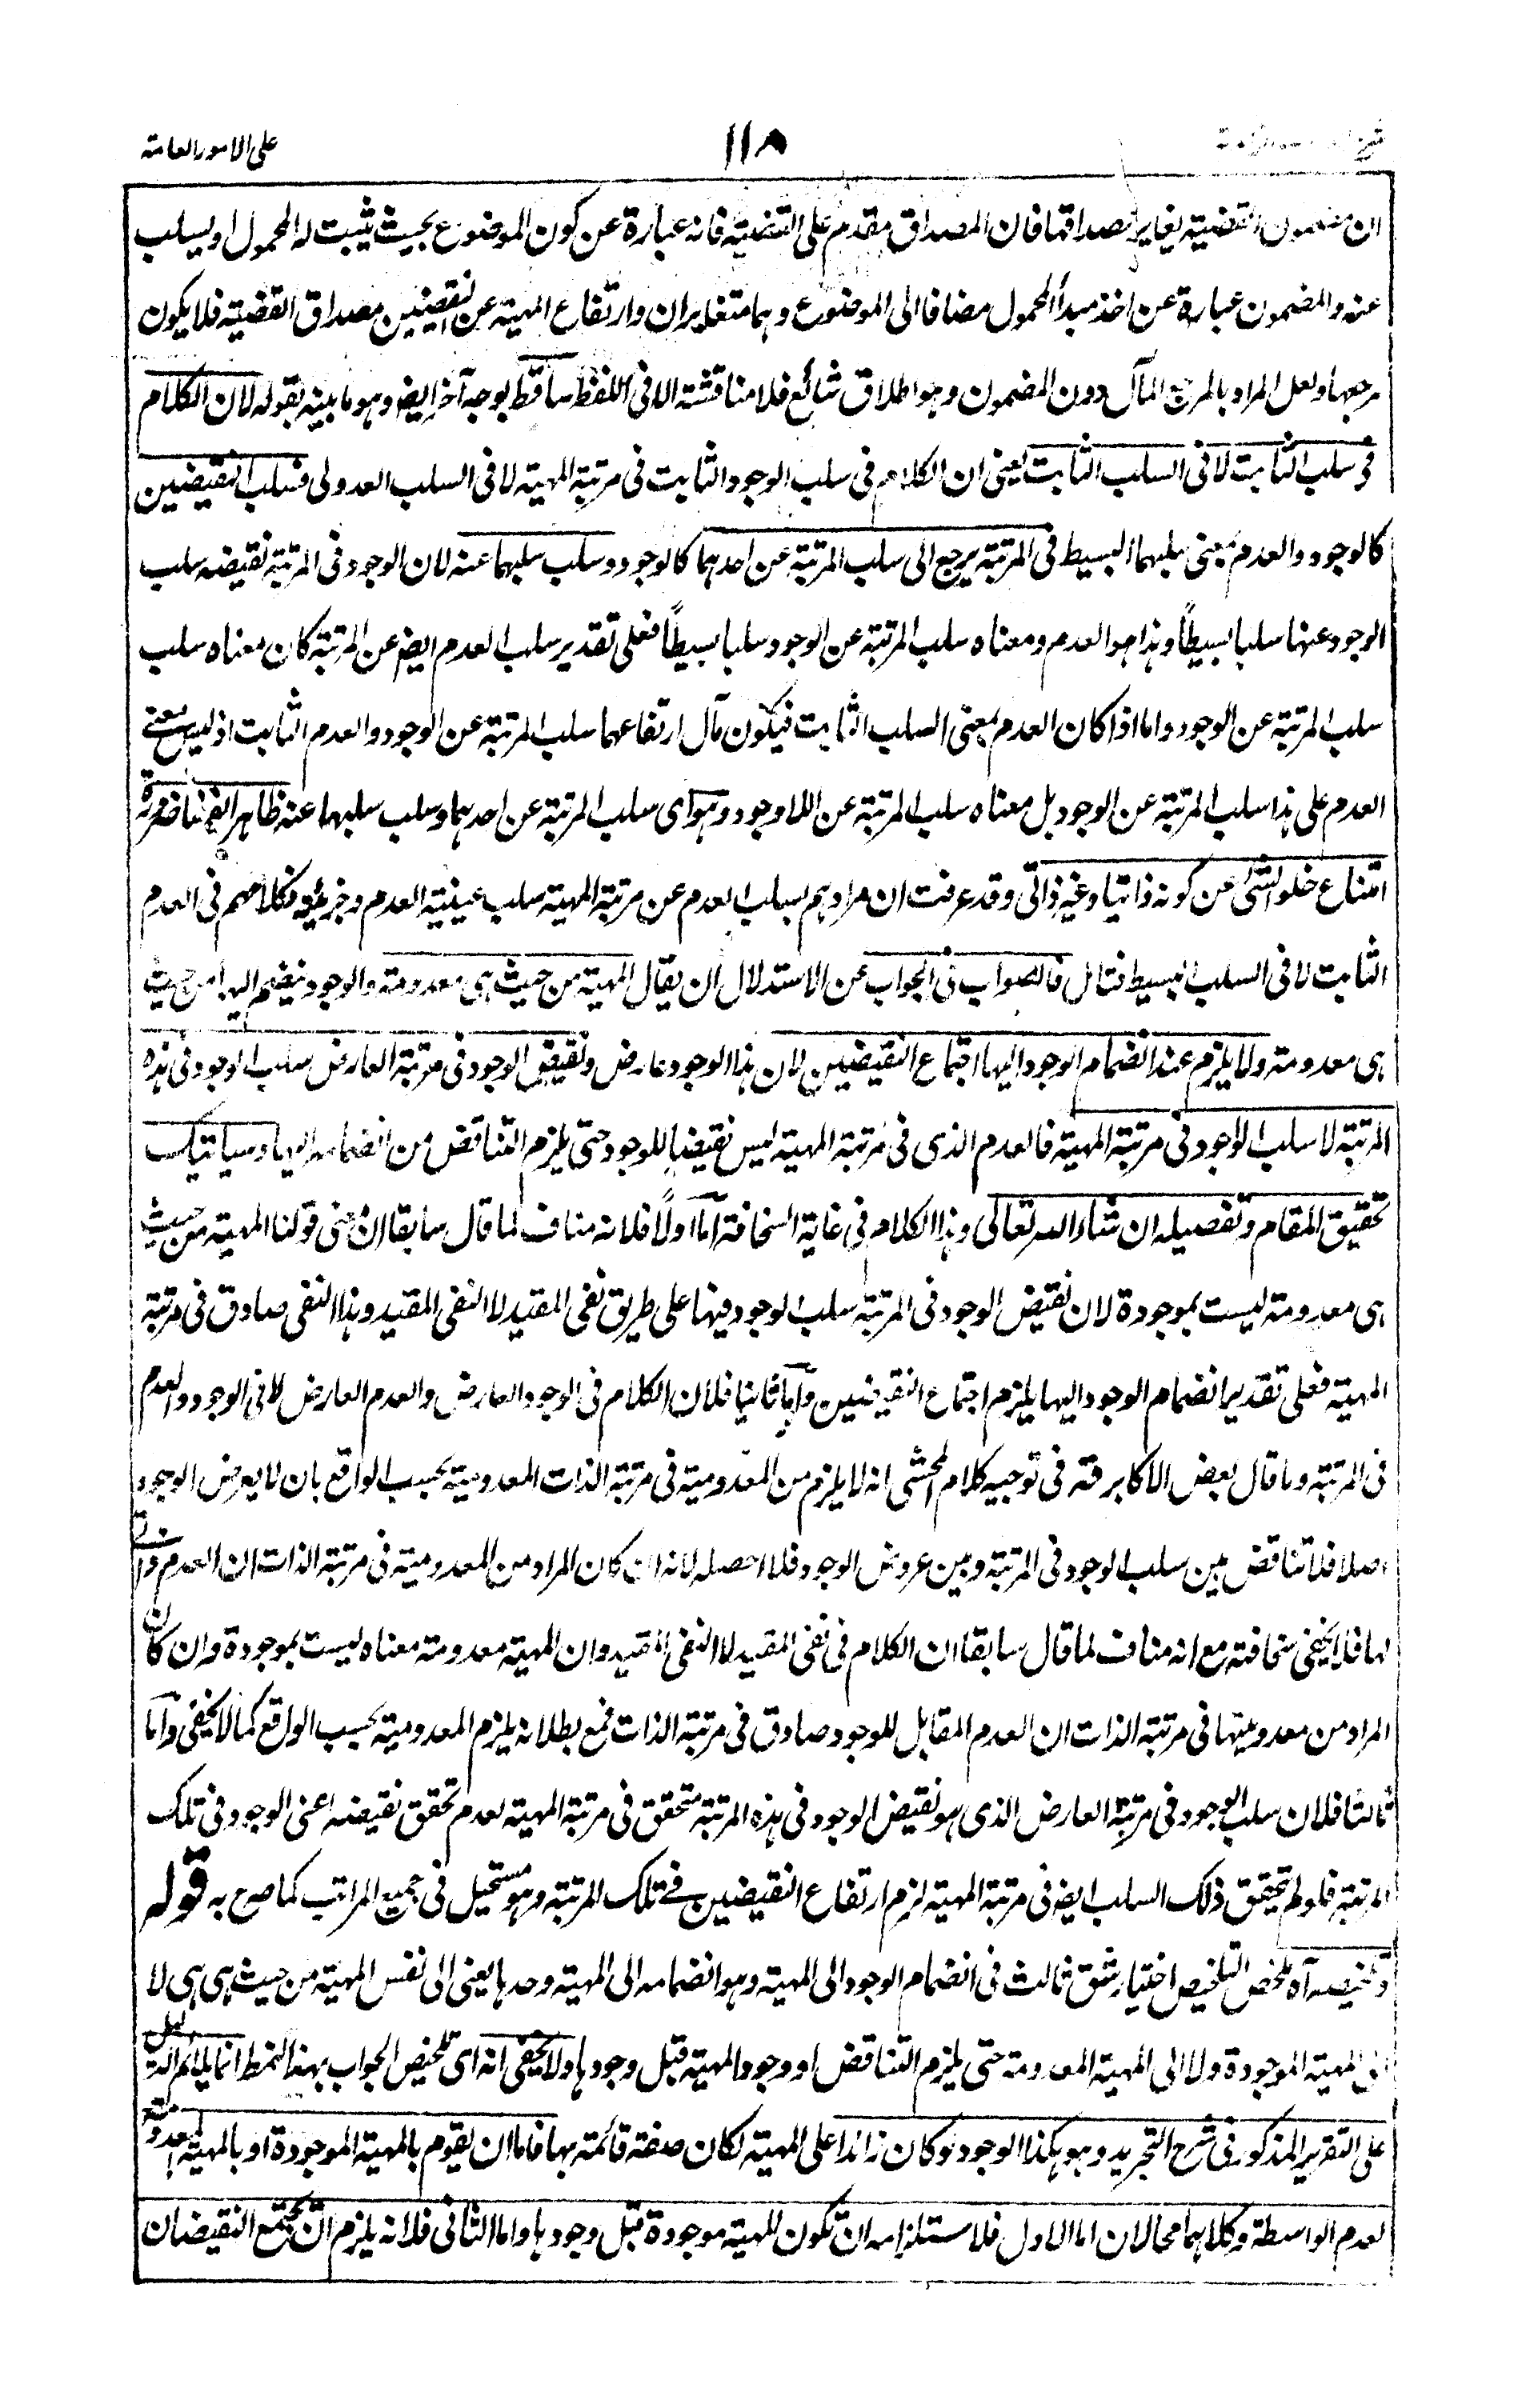 على الامور العامة
١١٨
ان مضمون القضية يغاير مصداقها فان المصداق مقدم على القضية فانه عبارة عن كون الموضوع بحيث يثبت له المحمول او يسلب
عنه والمضمون عبارة عن اخذ مبدأ المحمول مضافا الى الموضوع وهما متغايران وارتفاع المهية عن النقيضين مصداق القضية فلا يكون
مرجعها ولعل المراد بالمرجع المآل دون المضمون وهو اطلاق شائع فلا مناقشة الا فى اللفظ ساقط بوجه آخر ايضا وهو ما بينه بقوله لان الكلام
فى سلب الثابت لا فى السلب الثابت يعنى ان الكلام فى سلب الوجود الثابت فى مرتبة المهية لا فى السلب العدولى فسلب النقيضين
كالوجود والعدم بمعنى سلبهما البسيط فى المرتبة يرجع الى سلب المرتبة عن احدهما كالوجود وسلب سلبهما عنه لان الوجود فى المرتبة نقيضه سلب
الوجود عنها سلبا بسيطاً وهذا هو العدم ومعناه سلب المرتبة عن الوجود سلبا بسيطاً فعلى تقدير سلب العدم ايضا عن المرتبة كان معناه سلب
سلب المرتبة عن الوجود واما اذا كان العدم بمعنى السلب الثابت فيكون مآل ارتفاعهما سلب المرتبة عن الوجود والعدم الثابت اذ ليس معنے
العدم على هذا سلب المرتبة عن الوجود بل معناه سلب المرتبة عن اللاوجود وهو اى سلب المرتبة عن احدهما وسلب سلبهما عنه ظاهر ضرورة
امتناع خلو الشئ عن كونه ذاتيا وغير ذاتى وقد عرفت ان مرادهم بسلب العدم عن مرتبة المهية سلب عينية العدم وجزئيته فكلامهم فى العدم
الثابت لا فى السلب البسيط فتأمل فالصواب فى الجواب عن الاستدلال ان يقال المهية من حيث هى معدومة والوجود ينضم اليها من حيث
هى معدومة ولا يلزم عند انضمام الوجود اليها اجتماع النقيضين لان هذا الوجود عارض ونقيض الوجود فى مرتبة العارض سلب الوجود فى هذه
المرتبة لا سلب الوجود فى مرتبة المهية فالعدم الذى فى مرتبة المهية ليس نقيضا للوجود حتى يلزم التناقض من انضمامه اليها وسيأتيك
تحقيق المقام وتفصيله ان شاء الله تعالى وهذا الكلام فى غاية السخافة اما اولاً فلانه مناف لما قال سابقا ان معنى قولنا المهية من حيث
هى معدومة ليست بموجودة لان نقيض الوجود فى المرتبة سلب الوجود فيها على طريق نفى المقيد لا النفى المقيد وهذا النفى صادق فى مرتبة
المهية فعلى تقدير انضمام الوجود اليها يلزم اجتماع النقيضين واما ثانيا فلان الكلام فى الوجود العارض والعدم العارض لا فى الوجود والعدم
فى المرتبة وما قال بعض الاكابر قده فى توجيه كلام المحشى انه لا يلزم من المعدومية فى مرتبة الذات المعدومية بحسب الواقع بان لا يعرض الوجود
اصلا فلا تناقض بين سلب الوجود فى المرتبة وبين عروض الوجود فلا احصله لانه ان كان المراد من المعدومية فى مرتبة الذات ان العدم ذاتى
لها فلا يخفى سخافته مع انه مناف لما قال سابقا ان الكلام فى نفى المقيد لا النفى المقيد وان المهية معدومة معناه ليست بموجودة وان كان
المراد من معدوميتها فى مرتبة الذات ان العدم المقابل للوجود صادق فى مرتبة الذات فمع بطلانه يلزم المعدومية بحسب الواقع كما لا يخفى واما
ثالثا فلان سلب الوجود فى مرتبة العارض الذى هو نقيض الوجود فى هذه المرتبة متحقق فى مرتبة المهية لعدم تحقق نقيضه اعنى الوجود فى تلك
المرتبة فلو لم يتحقق ذلك السلب ايضا فى مرتبة المهية لزم ارتفاع النقيضين فے تلك المرتبة وهو مستحيل فى جميع المراتب كما صرح به قوله
وتلخيصه آه ملخص التلخيص اختيار شق ثالث فى انضمام الوجود الى المهية وهو انضمامه الى المهية وحدها يعنى الى نفس المهية من حيث هى هى لا
الى المهية الموجودة ولا الى المهية المعدومة حتى يلزم التناقض او وجود المهية قبل وجودها ولا يخفى انه اى تلخيص الجواب بهذا النمط انما يلائم الدليل
على التقرير المذكور فى شرح التجريد وهو هكذا الوجود لو كان زائدا على المهية لكان صفة قائمة بها فاما ان يقوم بالمهية الموجودة او بالمهية المعدومة
لعدم الواسطة وكلاهما محالان اما الاول فلاستلزامه ان تكون المهية موجودة قبل وجودها واما الثانى فلانه يلزم ان يجتمع النقيضان